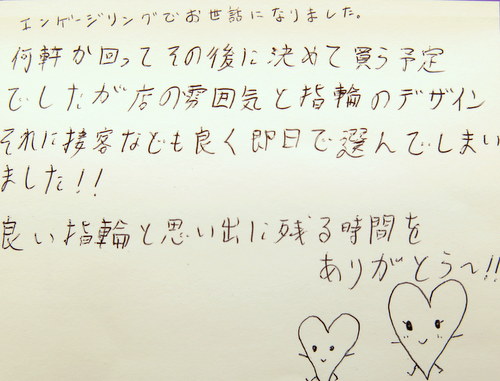 エンゲージリングでお世話になりました。
何軒か回ってその後に決めて買う予定
でしたが店の雰囲気と指輪のデザイン
それに接客なども良く即日で選んでしまい
ました!!
良い指輪と思い出に残る時間を
ありがとう〜!!